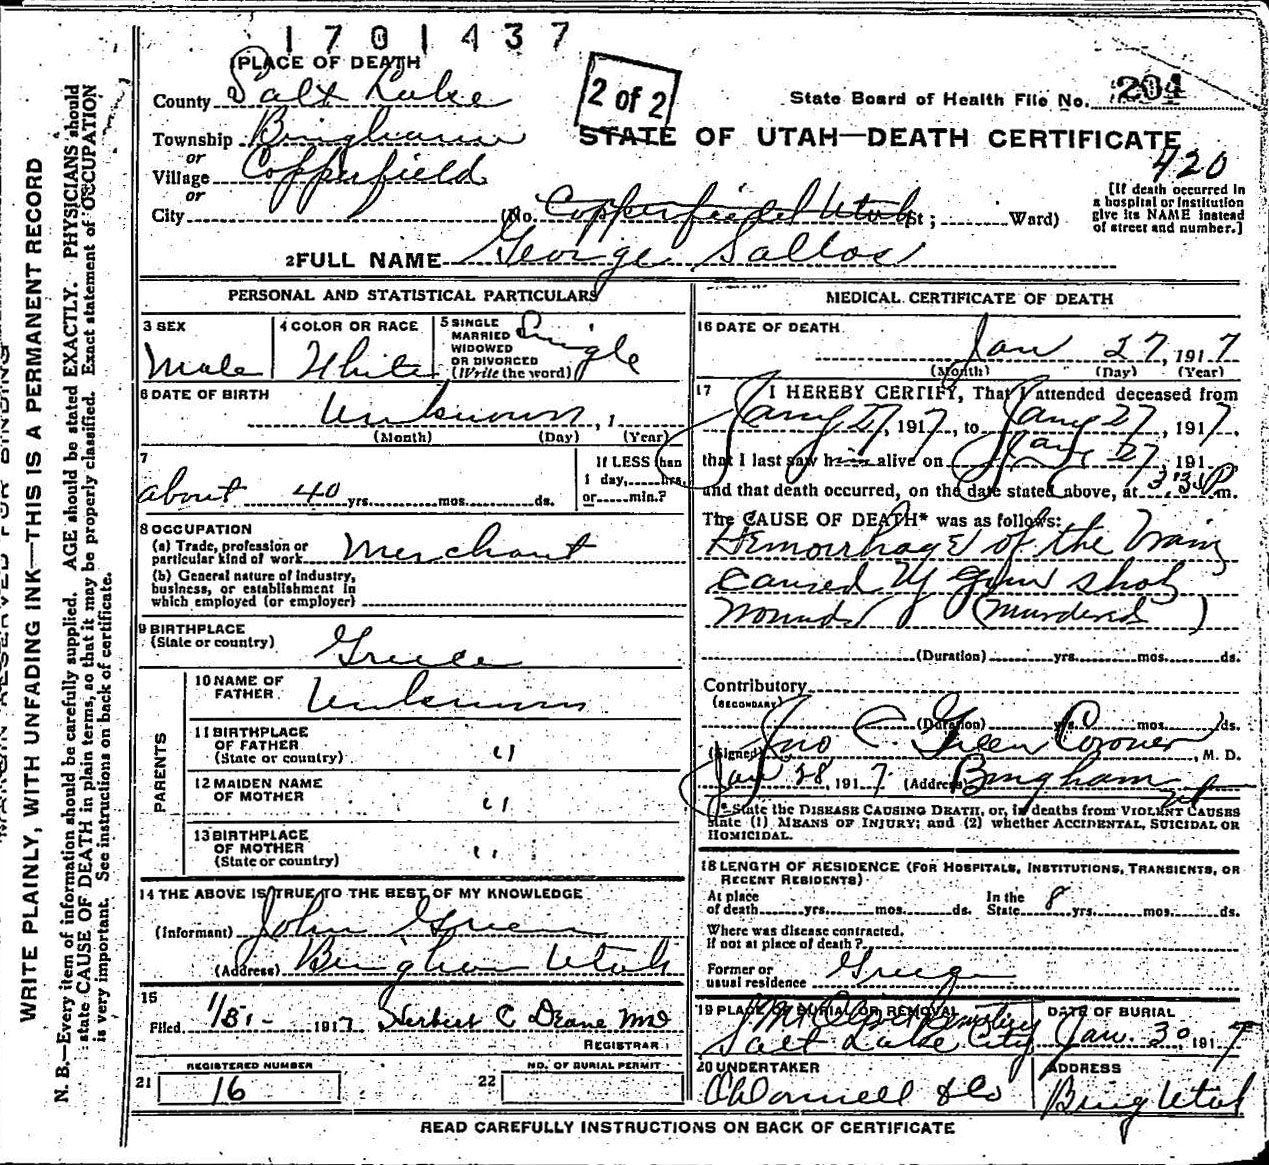 1701437
PLACE OF DEATH
2 of 2
County Salt Lake
State Board of Health File No. 204
Township Bingham
STATE OF UTAH—DEATH CERTIFICATE
or
420
Village Copperfield
or
[If death occurred in
a hospital or institution
give its NAME instead
of street and number.]
City (No. Copperfield Utah St; Ward)
2 FULL NAME George Sallos
PERSONAL AND STATISTICAL PARTICULARS
3 SEX
Male
4 COLOR OR RACE
White
5 SINGLE
MARRIED
WIDOWED
OR DIVORCED
(Write the word)
Single
6 DATE OF BIRTH
Unknown, 1
(Month) (Day) (Year)
7
about 40 yrs. mos. ds.
If LESS than
1 day, hrs.
or min.?
8 OCCUPATION
(a) Trade, profession or
particular kind of work Merchant
(b) General nature of industry,
business, or establishment in
which employed (or employer)
9 BIRTHPLACE
(State or country) Greece
PARENTS
10 NAME OF
FATHER Unknown
11 BIRTHPLACE
OF FATHER
(State or country) "
12 MAIDEN NAME
OF MOTHER "
13 BIRTHPLACE
OF MOTHER
(State or country) "
14 THE ABOVE IS TRUE TO THE BEST OF MY KNOWLEDGE
(Informant) John Green
(Address) Bingham Utah
15
Filed 1/31- 1917 Herbert C Deane MD
REGISTRAR
REGISTERED NUMBER
21 16
NO. OF BURIAL PERMIT
22
MEDICAL CERTIFICATE OF DEATH
16 DATE OF DEATH
Jan 27, 1917
(Month) (Day) (Year)
17 I HEREBY CERTIFY, That I attended deceased from
Jany 27, 1917, to Jany 27, 1917,
that I last saw him alive on Jany 27, 191
and that death occurred, on the date stated above, at 3:30 P.m.
The CAUSE OF DEATH* was as follows:
Hemorrhage of the brain
caused by gun shot
wounds (Murdered)
(Duration) yrs. mos. ds.
Contributory
(SECONDARY)
(Duration) yrs. mos. ds.
(Signed) Jno C. Green Coroner, M. D.
Jan 28, 1917. (Address) Bingham Ut
*State the DISEASE CAUSING DEATH, or, in deaths from VIOLENT CAUSES
state (1) MEANS OF INJURY; and (2) whether ACCIDENTAL, SUICIDAL OR
HOMICIDAL.
18 LENGTH OF RESIDENCE (FOR HOSPITALS, INSTITUTIONS, TRANSIENTS, OR
RECENT RESIDENTS)
At place
of death yrs. mos. ds.
In the
State 8 yrs. mos. ds.
Where was disease contracted,
if not at place of death?
Former or
usual residence Greece
19 PLACE OF BURIAL OR REMOVAL
Mt Olivet Cemetery
Salt Lake City
DATE OF BURIAL
Jan. 30 1917
20 UNDERTAKER
O'Donnell & Co
ADDRESS
Bing Utah
READ CAREFULLY INSTRUCTIONS ON BACK OF CERTIFICATE
MARGIN RESERVED FOR BINDING
WRITE PLAINLY, WITH UNFADING INK—THIS IS A PERMANENT RECORD
N. B.—Every item of information should be carefully supplied. AGE should be stated EXACTLY. PHYSICIANS should
state CAUSE OF DEATH in plain terms, so that it may be properly classified. Exact statement of OCCUPATION
is very important. See instructions on back of certificate.